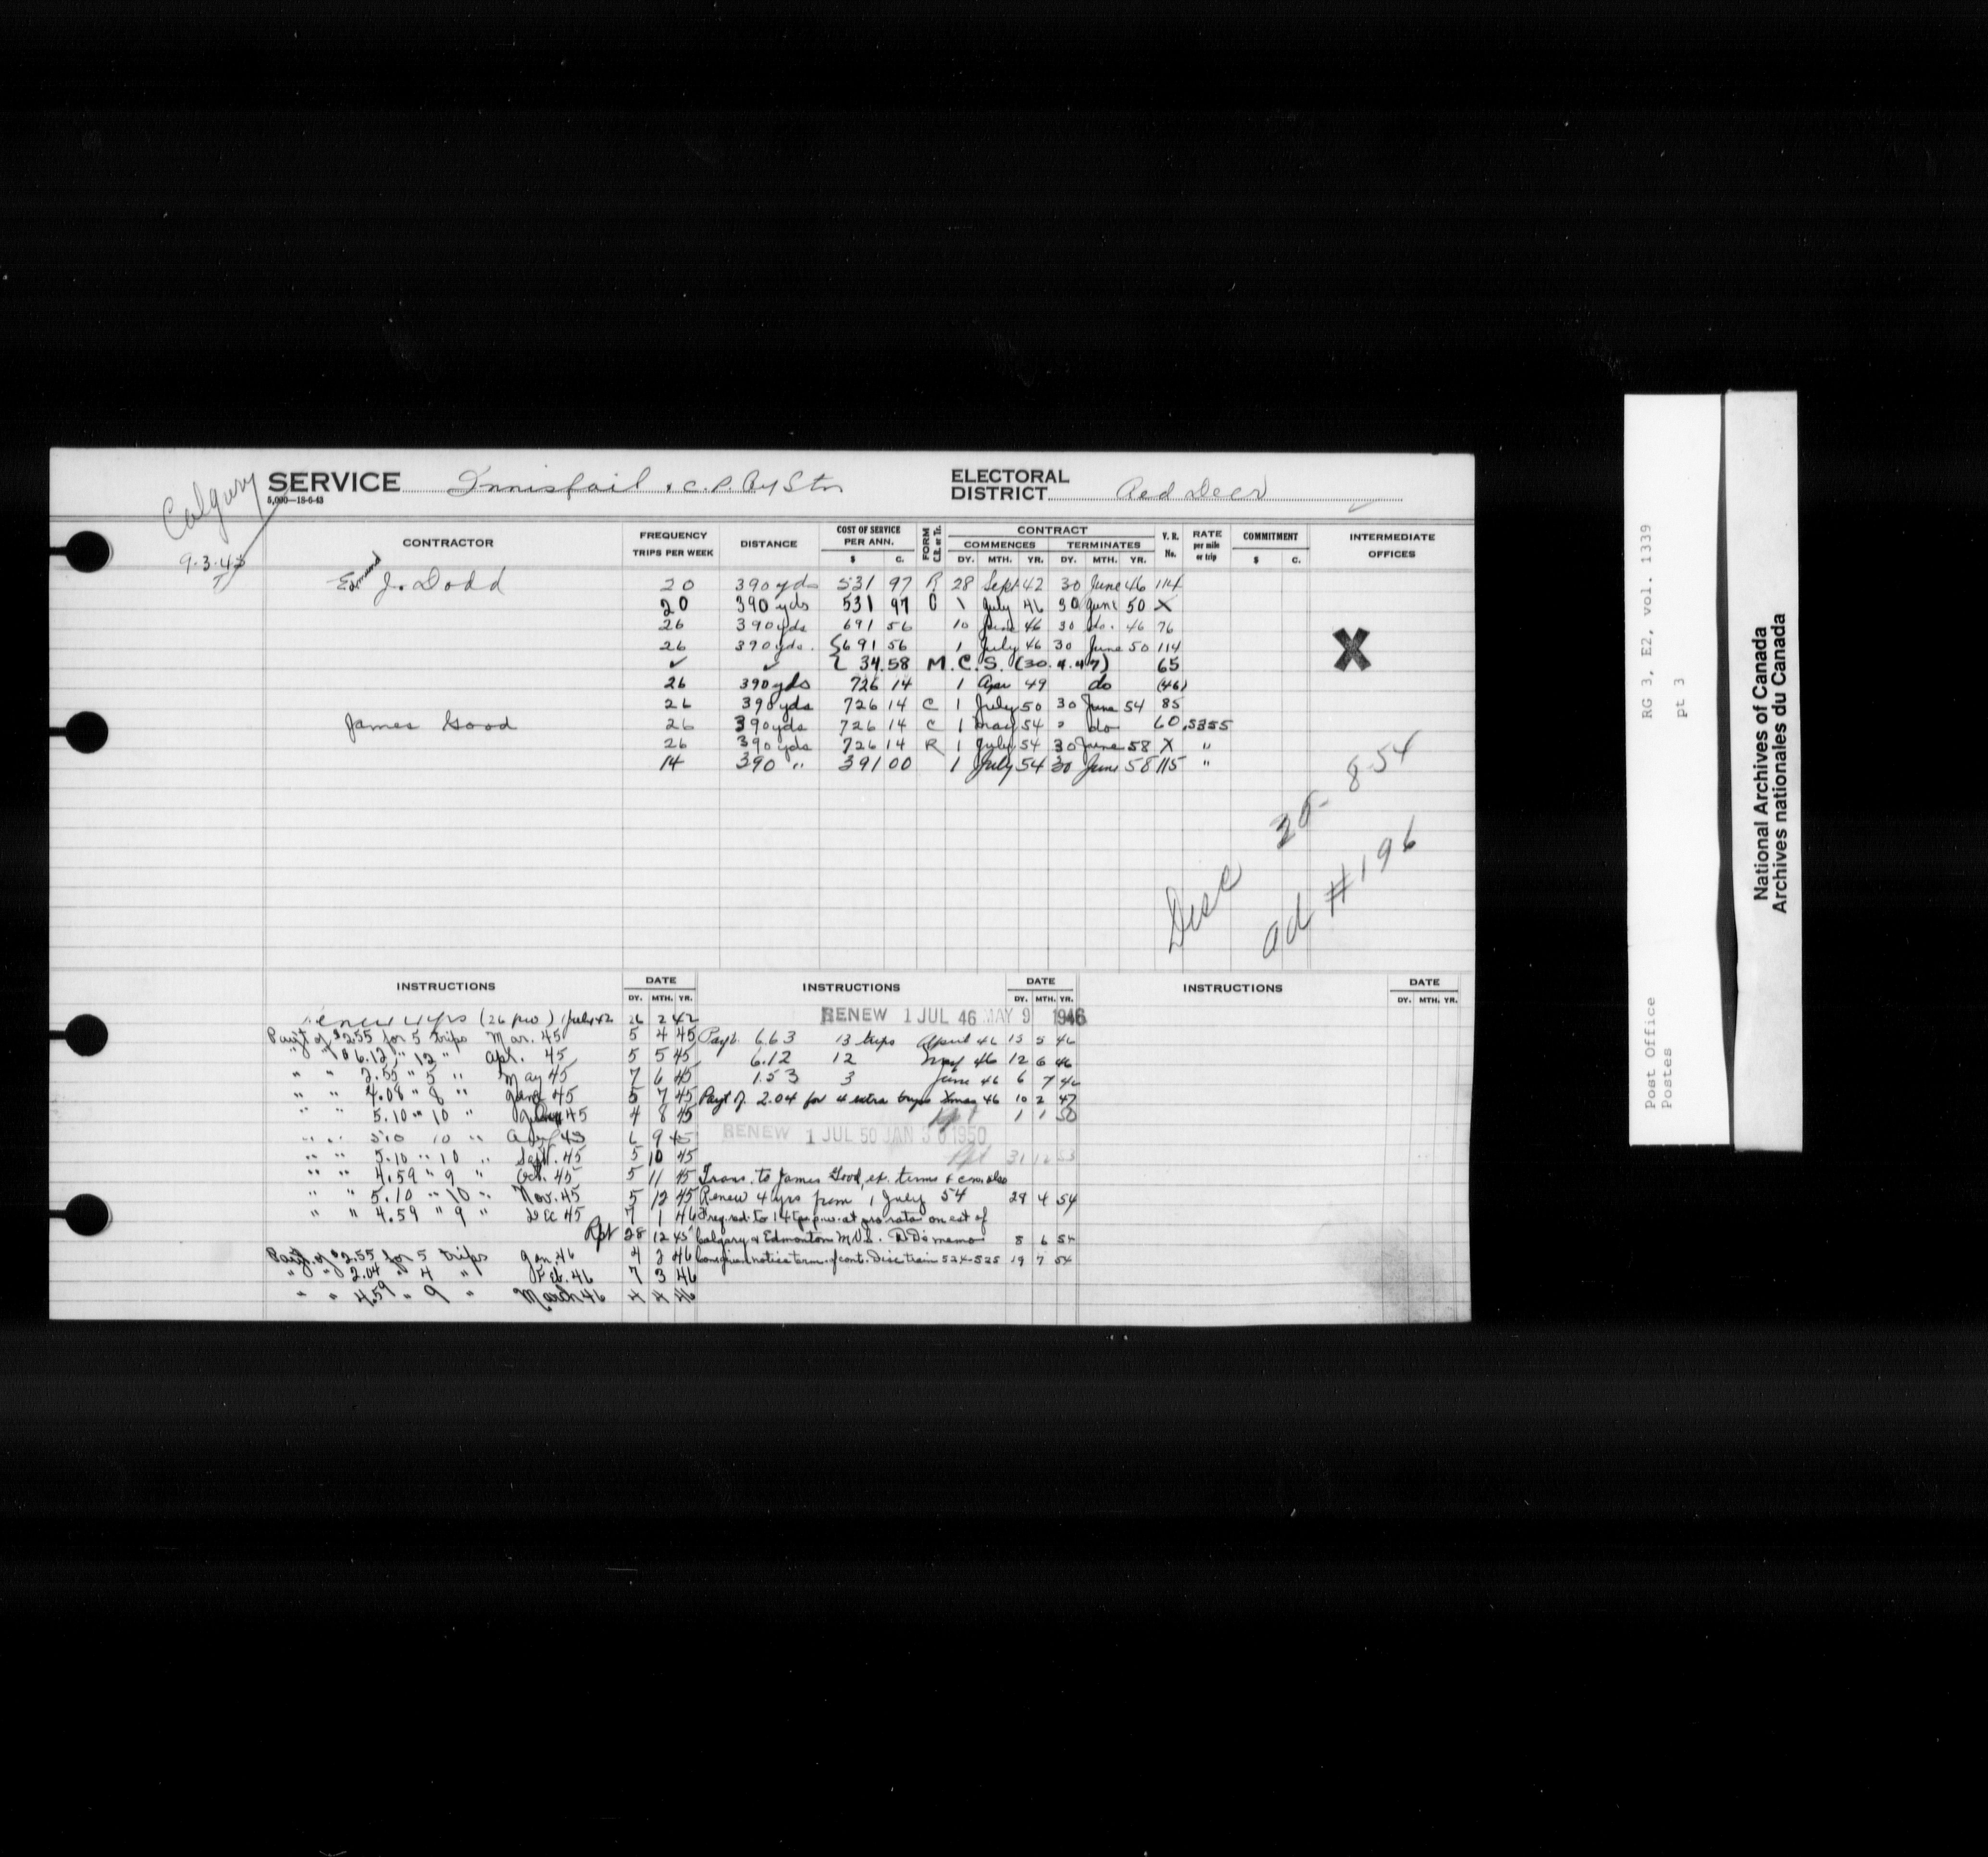 Calgary
9.3.45
SERVICE Innisfail & C.P. Ry Stn
5,000—18-6-43
ELECTORAL DISTRICT Red Deer
CONTRACTOR FREQUENCY TRIPS PER WEEK DISTANCE COST OF SERVICE PER ANN. $ C. FORM C.R. or Tr. CONTRACT COMMENCES DY. MTH. YR. TERMINATES DY. MTH. YR. V.R. No. RATE per mile or trip COMMITMENT $ C. INTERMEDIATE OFFICES
Edmund J. Dodd 20 390 yds 531 97 R 28 Sept 42 30 June 46 114
20 390 yds 531 97 C 1 July 46 30 June 50 X
26 390 yds 691 56 10 June 46 30 do. 46 76
26 390 yds. 691 56 1 July 46 30 June 50 114
✓ ✓ 34.58 M.C.S. (30.4.47) 65
X
26 390 yds 726 14 1 Apr 49 do (46)
26 390 yds 726 14 C 1 July 50 30 June 54 85
James Good 26 390 yds 726 14 C 1 May 54 " do 60 .5355
26 390 yds 726 14 R 1 July 54 30 June 58 X "
14 390 " 391 00 1 July 54 30 June 58 115 "
Disc 8-54
ad #196
INSTRUCTIONS DATE DY. MTH. YR. INSTRUCTIONS DATE DY. MTH. YR. INSTRUCTIONS DATE DY. MTH. YR.
Renew 4 yrs (26 pw) 1 July 42 26 2 42
Payt of $2.55 for 5 trips Mar. 45 5 4 45
" " 6.12 " 12 " Apl. 45 5 5 45
" " 2.55 " 5 " May 45 7 6 45
" " 4.08 " 8 " June 45 5 7 45
" " 5.10 " 10 " July 45 4 8 45
" " 5.10 10 " Aug 45 6 9 45
" " 5.10 " 10 " Sept. 45 5 10 45
" " 4.59 " 9 " Oct. 45 5 11 45
" " 5.10 " 10 " Nov. 45 5 12 45
" " 4.59 " 9 " Dec 45 7 1 46
Rpt 28 12 45
Payt. of $2.55 for 5 trips Jan. 46 4 2 46
" " 2.04 " 4 " Feb. 46 7 3 46
" " 4.59 " 9 " March 46 4 4 46
RENEW 1 JUL 46 MAY 9 1946
Payt. 6.63 13 trips April 46 15 5 46
6.12 12 May 46 12 6 46
1.53 3 June 46 6 7 46
Payt of. 2.04 for 4 extra trips Xmas 46 10 2 47
Rpt 1 1 50
RENEW 1 JUL 50 JAN 30 1950
Rpt 31 12 53
Trans. to James Good, ex. terms & con. also
Renew 4 yrs from 1 July 54 29 4 54
Freq. red. to 14 tps p.w. at pro rata on est of
Calgary & Edmonton M.V.S. DD's memo 8 6 54
notice term. of cont. Disc train 524-525 19 7 54
RG 3, E2, vol. 1339
pt 3
Post Office
Postes
National Archives of Canada
Archives nationales du Canada